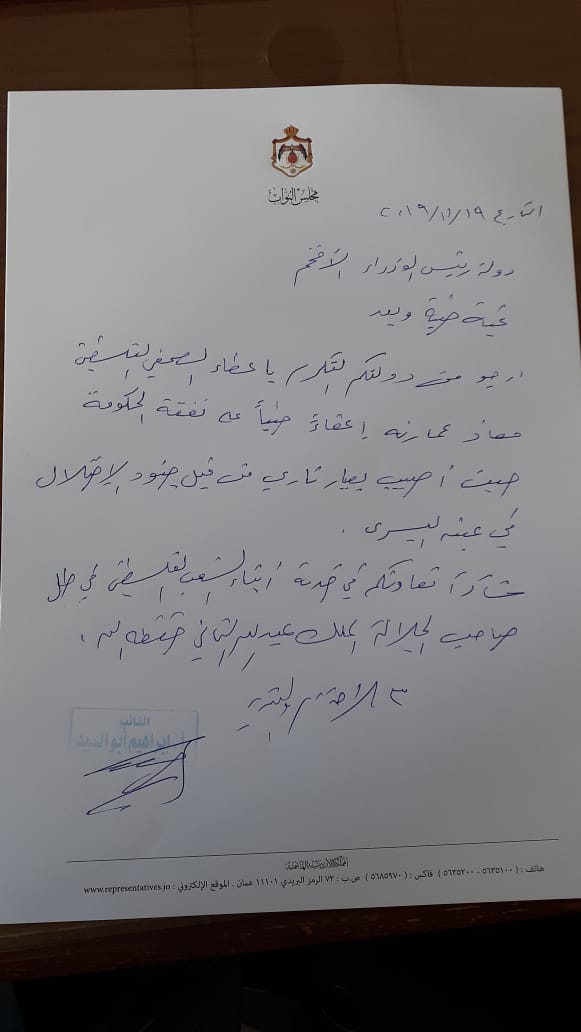 مجلس النواب
التاريخ ٢٠١٩/١١/١٩
دولة رئيس الوزراء الأفخم
تحية طيبة وبعد
ارجو من دولتكم التكرم بإعطاء الصحفي الفلسطيني
معاذ عمارنه إعفاءً طبياً على نفقة الحكومة
حيث أصيب بعيار ناري من قبل جنود الاحتلال
في عينه اليسرى .
شاكراً تعاونكم في خدمة أبناء الشعب الفلسطيني في ظل
صاحب الجلالة الملك عبدالله الثاني حفظه الله .
مع الاحترام والتقدير
النائب
ابراهيم أبو السيد
المملكة الأردنية الهاشمية
هاتف : ( ٥٦٣٥١٠٠ - ٥٦٣٥٢٠٠ ) فاكس : ( ٥٦٨٥٩٧٠ ) ص.ب : ٧٢ الرمز البريدي ١١١٠١ عمان . الموقع الإلكتروني : www.representatives.jo